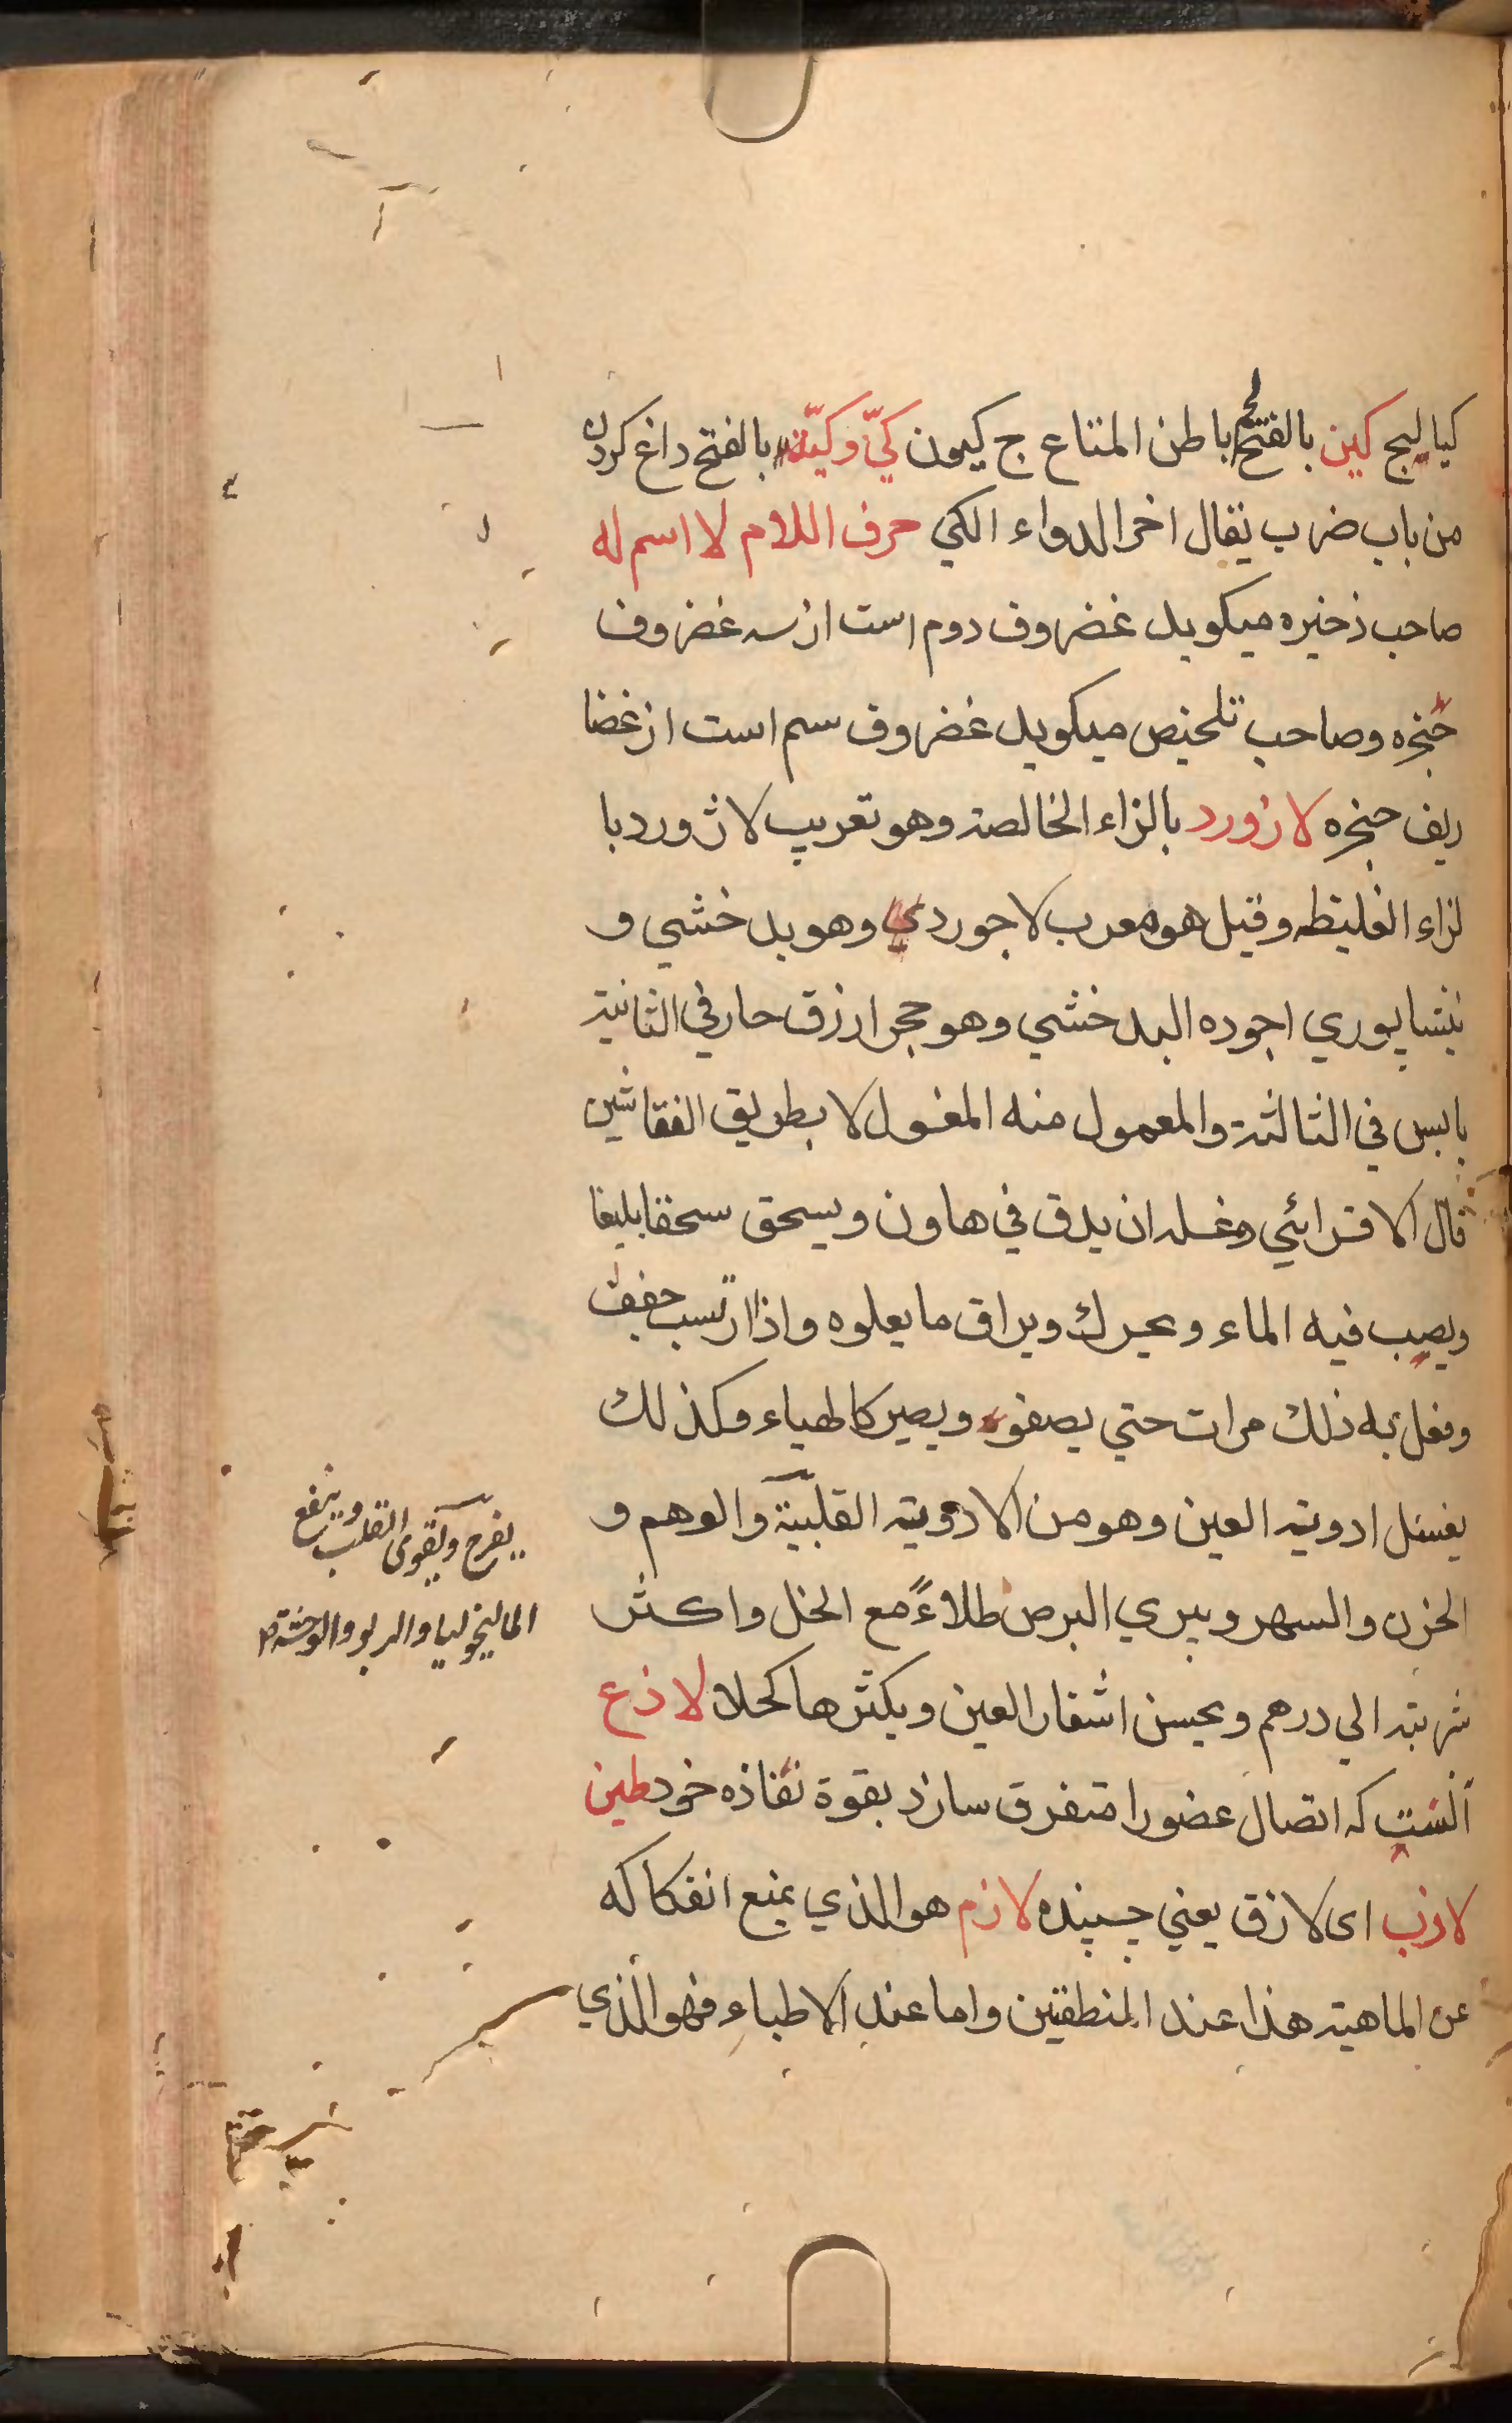 كيالبج كين بالفتح لحم باطن المتاع ج كيون كيّ وكيّة بالفتح داغ كردن
من باب ضرب يقال اخر الدواء الكي حرف اللام لا اسم له
صاحب ذخيره ميكويد غضروف دوم است از سه غضروف
حنجره وصاحب تلخيص ميكويد غضروف سم است از غضا
ريف حنجره لازورد بالزاء الخالصة وهو تعريب لاژورد با
لزاء الغليظه وقيل هو معرب لاجوردي وهو بدخشي و
نيشاپوري اجوده البدخشي وهو حجر ازرق حار في الثانية
يابس في الثالثة والمعمول منه المغسول لا بطريق النقاشين
قال الاقسرائي وغسله ان يدق في هاون ويسحق سحقا بليغا
ويصب فيه الماء ويحرك ويراق ما يعلوه واذا رسب جفف
وفعل به ذلك مرات حتي يصفو ويصير كالهباء وكذلك
يغسل ادوية العين وهو من الادوية القلبية والوهم و
الحزن والسهر ويبري البرص طلاءً مع الخل واكثر
شربته الي درهم ويحسن اشفار العين ويكثرها كحلا لاذع
آنست كه اتصال عضورا متفرق سازد بقوة نفاذه خود طين
لازب اى لازق يعني چسپنده لازم هو الذي يمنع انفكاكه
عن الماهية هذا عند المنطقين واما عند الاطباء فهو الّذي
يفرح ويقوى القلب وينفع
الماليخوليا والربو والوحشة